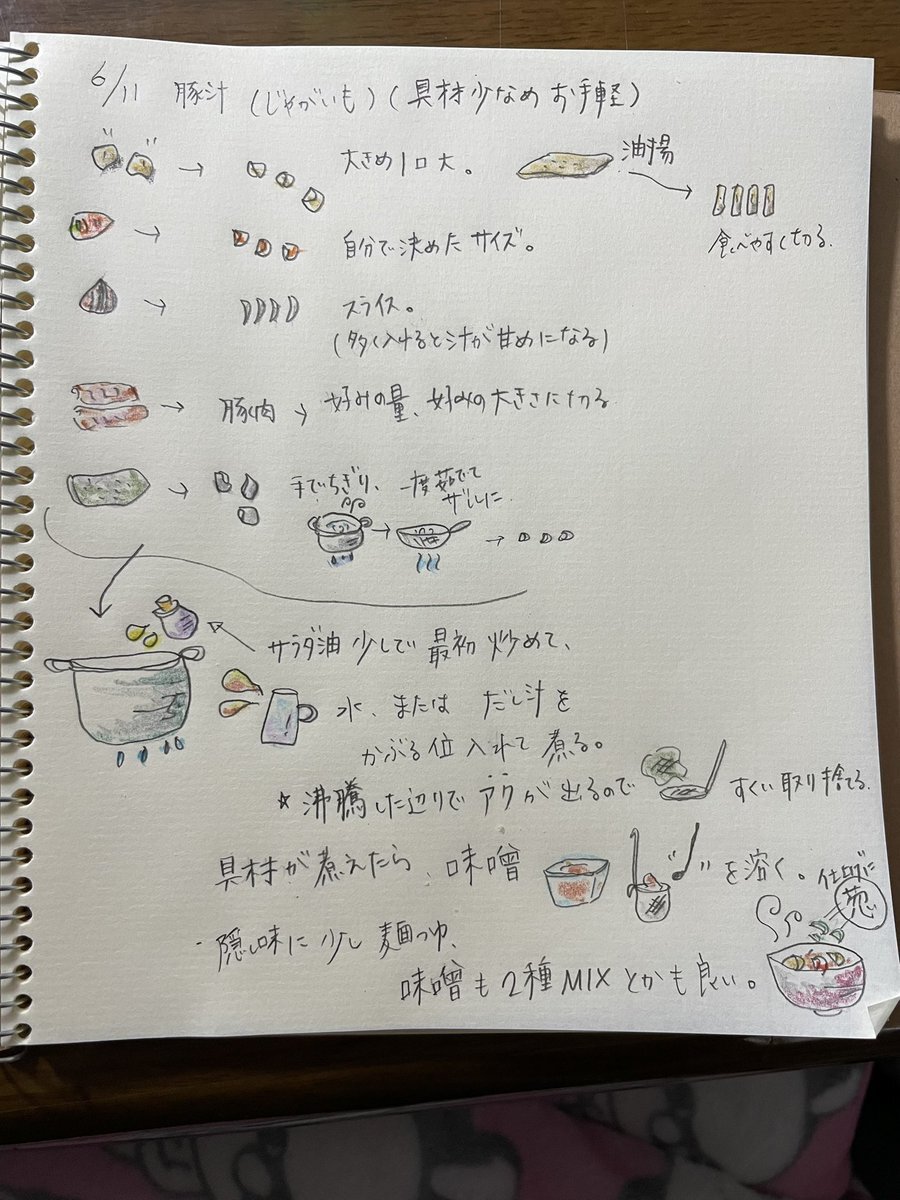 6/11 豚汁 (じゃがいも) (具材少なめお手軽)
大きめ1口大。
油揚
食べやすく切る.
自分で決めたサイズ。
スライス。
(多く入れると汁が甘めになる)
豚肉 → 好みの量、好みの大きさに切る
手でちぎり、一度茹でて
ザルに.
サラダ油少しで最初炒めて、
水、または だし汁を
かぶる位入れて煮る。
☆沸騰した辺りでアクが出るので すくい取り捨てる.
具材が煮えたら、味噌 を溶く。
仕上げに
葱
・隠し味に少し麺つゆ、
味噌も2種MIXとかも良い。